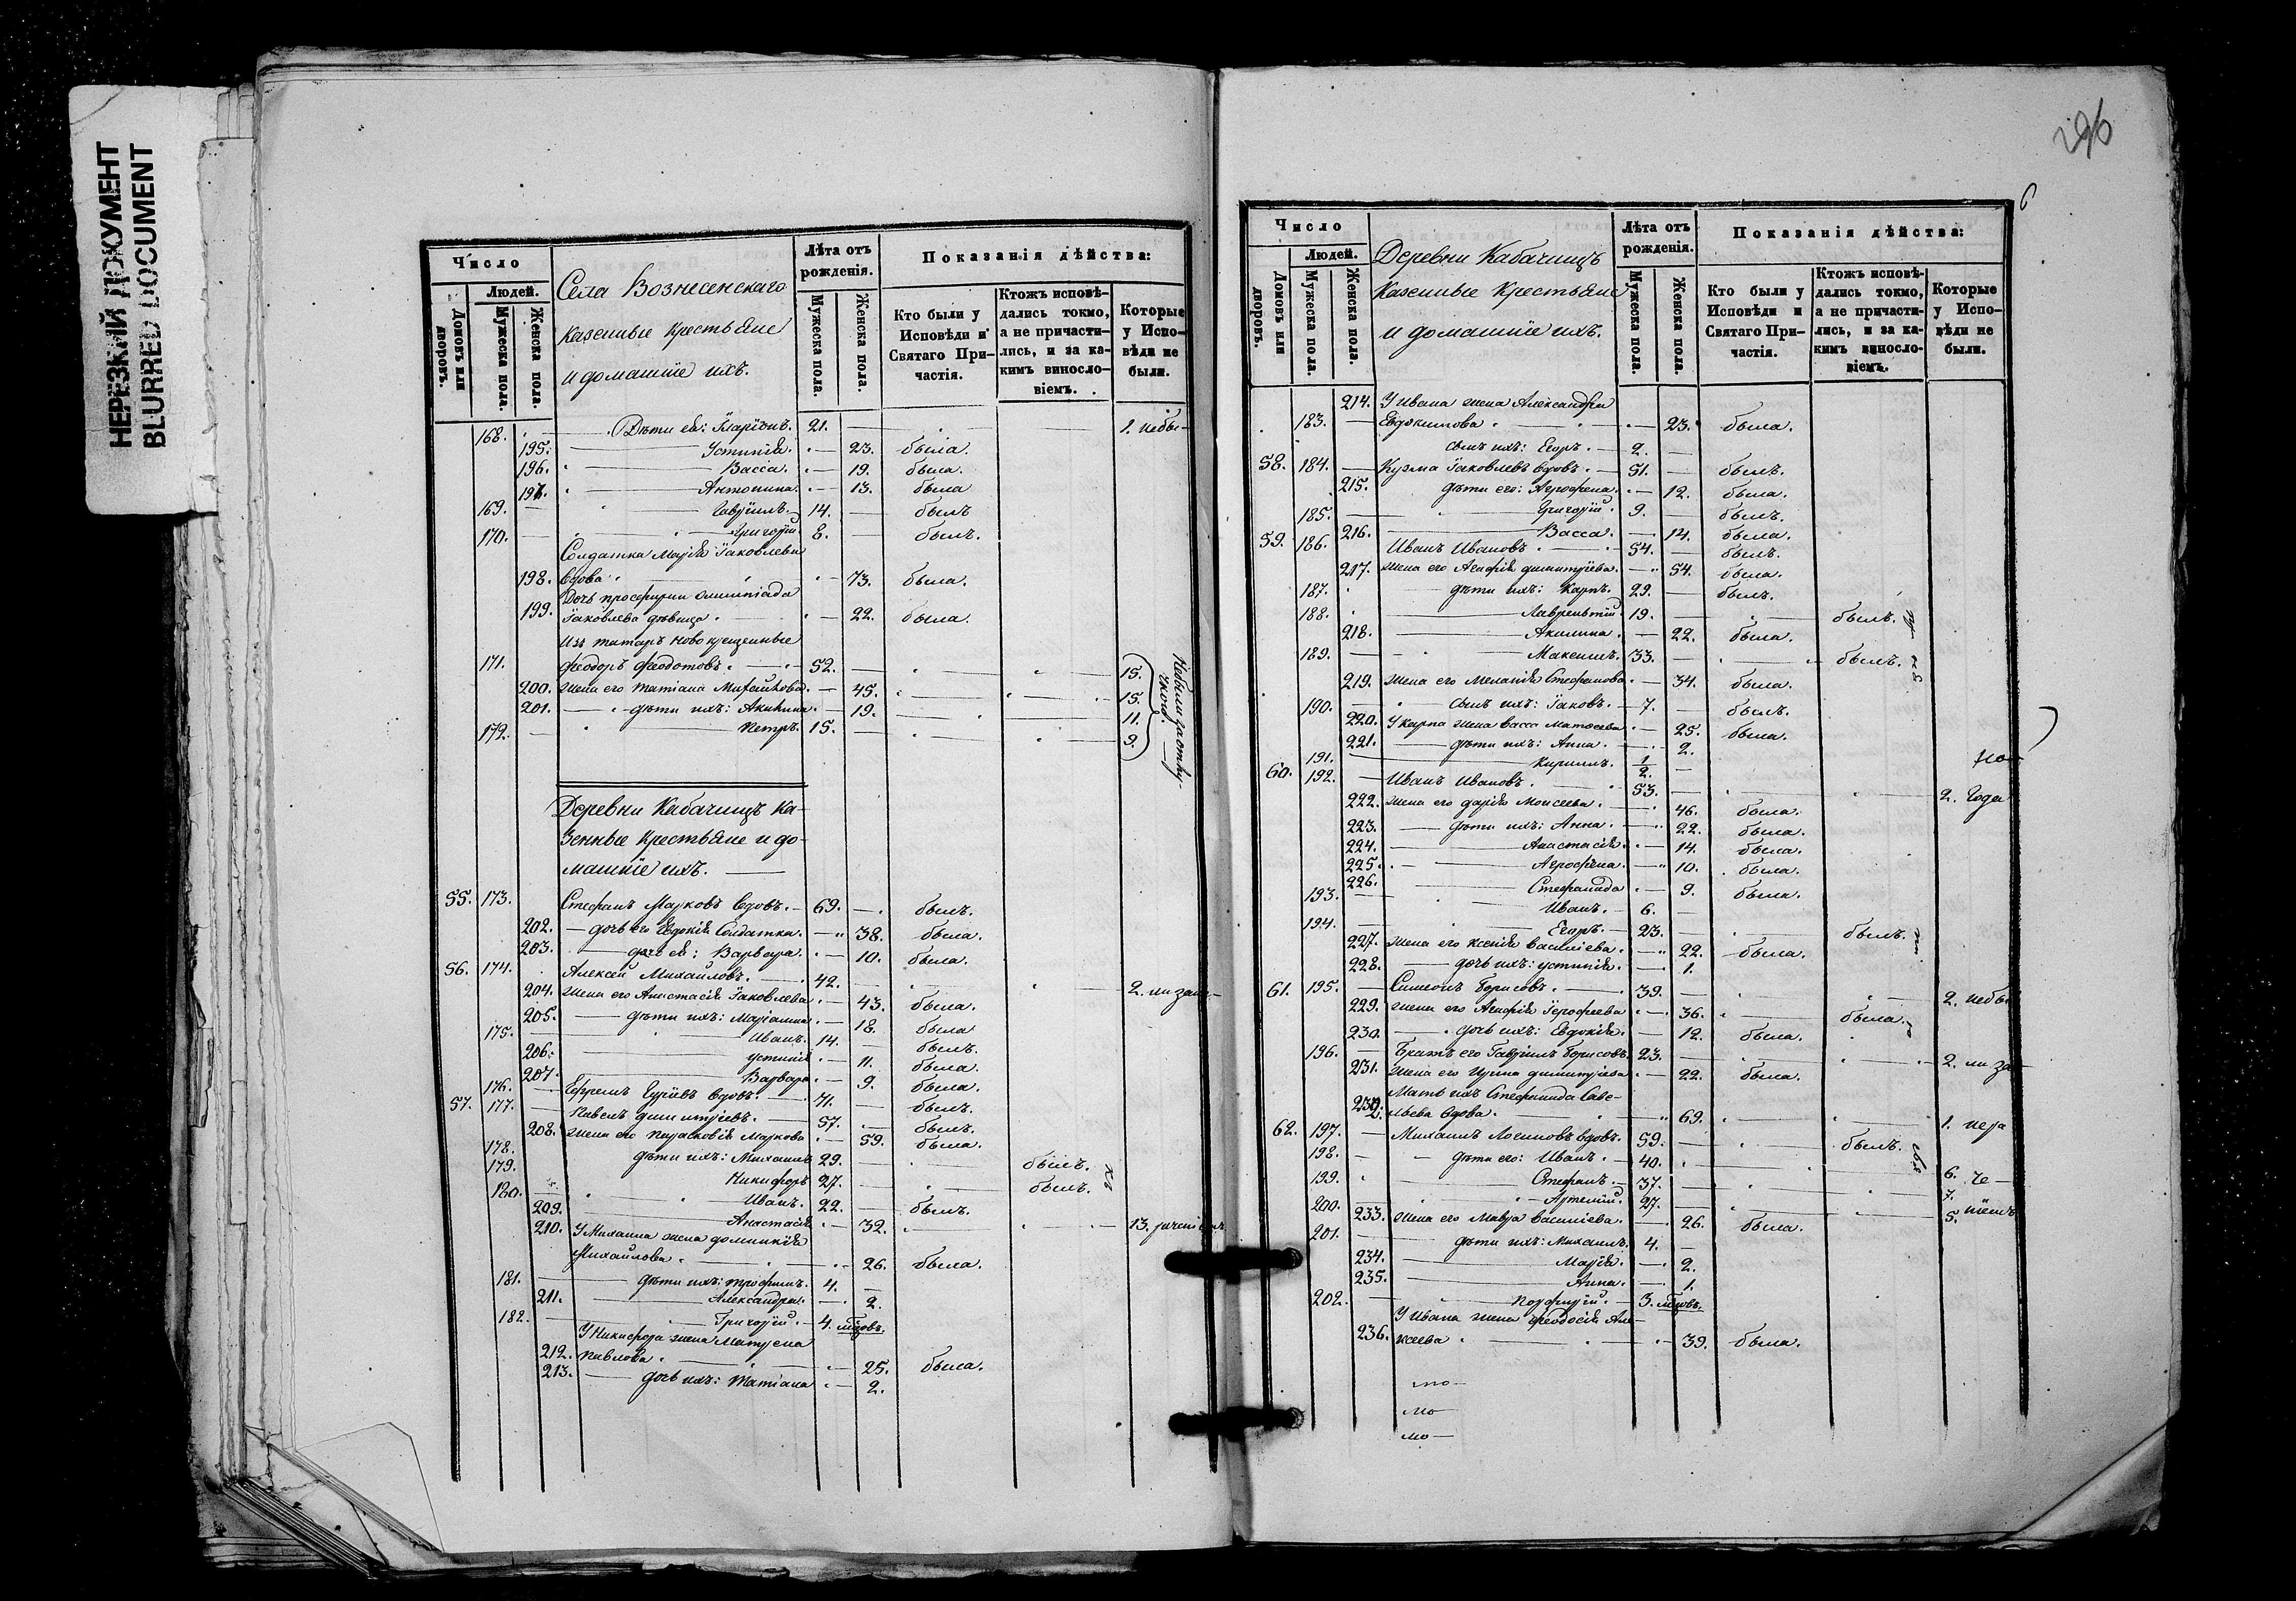 НЕРЕЗКИЙ ДОКУМЕНТ
BLURRED DOCUMENT
Число
Людей.
Домовъ или дворовъ.
Мужеска пола.
Женска пола.
Села Вознесенскаго
казенные крестьяне
и домашніе ихъ.
Лѣта отъ рожденія.
Мужеска пола.
Женска пола.
Показанія дѣйства:
Кто были у Исповѣди и Святаго Причастія.
Ктожъ исповѣдались токмо, а не причастились, и за какимъ винословіемъ.
Которые у Исповѣди не были.
168. Дѣти ея: Иларіонъ. 21. 1. небы-
195. Устинія. 23. была.
196. Васса. 19. была.
197. Антонина. 13. была
169. Гавріилъ. 14. былъ
170. Григорій 8. былъ.
Солдатка Марія Іаковлева
198. вдова 73. была.
Дочь просфирни Олимпіада
199. Іаковлева дѣвица. 22. была.
Изъ татаръ новокрещенные
171. Феодоръ Феодотовъ. 52. 15.
200. жена его Татіана Михайлова. 45. 15.
201. дѣти ихъ: Акилина. 19. 11.
172. Петръ. 15. 9.
Небыли за отлу-
Деревни Кабачищъ Ка-
зенные Крестьяне и до-
машніе ихъ.
55. 173. Стефанъ Марковъ вдовъ. 69. былъ.
202. дочь его Евдокія Солдатка. 38. была.
203. дочь ея: Варвара. 10. была.
56. 174. Алексей Михайловъ. 42. 2.
204. жена его Анастасія Іаковлева 43. была.
205. дѣти ихъ: Маріамна. 18. была
175. Иванъ. 14. былъ.
206. Устинія 11. была.
207. Варвара 9. была.
176. Ефремъ вдовъ. 71. былъ.
57. 177. Павелъ Димитріевъ. 57. былъ.
208. жена его Парасковія Маркова 59. была.
178. дѣти ихъ: Михаилъ 29. былъ.
179. Никифоръ 27. былъ.
180. Иванъ. 22. былъ.
209. Анастасія 32. 13.
210. У Михаила жена Домникія
Михайлова. 26. была.
181. дѣти ихъ: Трофимъ. 4.
211. Александра. 2.
182. Григорій. 4. мѣсцовъ.
У Никифора жена Матрена
212. Павлова. 25. была.
213. дочь ихъ: Татіана 2.
296
6
Число
Людей.
Домовъ или дворовъ.
Мужеска пола.
Женска пола.
Деревни Кабачищъ
казенные Крестьяне
и домашніе ихъ.
Лѣта отъ рожденія.
Мужеска пола.
Женска пола.
Показанія дѣйства:
Кто были у Исповѣди и Святаго Причастія.
Ктожъ исповѣдались токмо, а не причастились, и за какимъ винословіемъ.
Которые у Исповѣди не были.
214. У Ивана жена Александра
Евдокимова 23. была.
183. сынъ ихъ: Егоръ. 2.
58. 184. Кузма Іаковлевъ вдовъ. 51. былъ.
215. дѣти его: Агрофена. 12. была.
185. Григорій. 9. былъ.
216. Васса. 14. была.
59. 186. Иванъ Ивановъ 54. былъ.
217. жена его Агафія Димитріева. 54. была.
187. дѣти ихъ: Карпъ. 29. былъ.
188. Лаврентій 19. былъ.
218. Акилина. 22. была.
189. Максимъ. 33. былъ.
219. жена его Меланія Стефанова 34. была.
190. сынъ ихъ: Іаковъ. 7. былъ.
220. У Карпа жена Васса Матвеева 25. была.
221. дѣти ихъ: Анна. 2.
191. Кирилъ. 1/2.
60. 192. Иванъ Ивановъ. 53. 2. года
222. жена его Дарія Моисеева. 46. была.
223. дѣти ихъ: Анна. 22. была.
224. Анастасія. 14. была.
225. Агрофена. 10. была.
226. Стефанида 9. была.
193. Иванъ. 6.
194. Егоръ. 23. былъ.
227. жена его Ксенія Василіева. 22. была.
228. дочь ихъ: Устинія. 1.
61. 195. Симеонъ Борисовъ. 39. 2. небы
229. жена его Агафія Іерофеева 36. была.
230. дочь ихъ: Евдокія. 12. была.
196. Братъ его Гавріилъ Борисовъ. 23. 2.
231. жена его Ирина Димитріева 22. была.
Мать ихъ Стефанида Саве-
232. льева вдова. 69. 1. нера
62. 197. Михаилъ Логиновъ вдовъ. 59. былъ.
198. дѣти его: Иванъ. 40. 6.
199. Стефанъ. 37. 7.
200. Артемій. 27. 5.
233. жена его Мавра Василіева. 26. была.
201. дѣти ихъ: Михаилъ. 4.
234. Марія. 2.
235. Анна. 1.
202. Порфирій. 3. мѣсцовъ.
У Ивана жена Феодосія Але-
236. ксеева 39. была.
то-
мо-
мо-